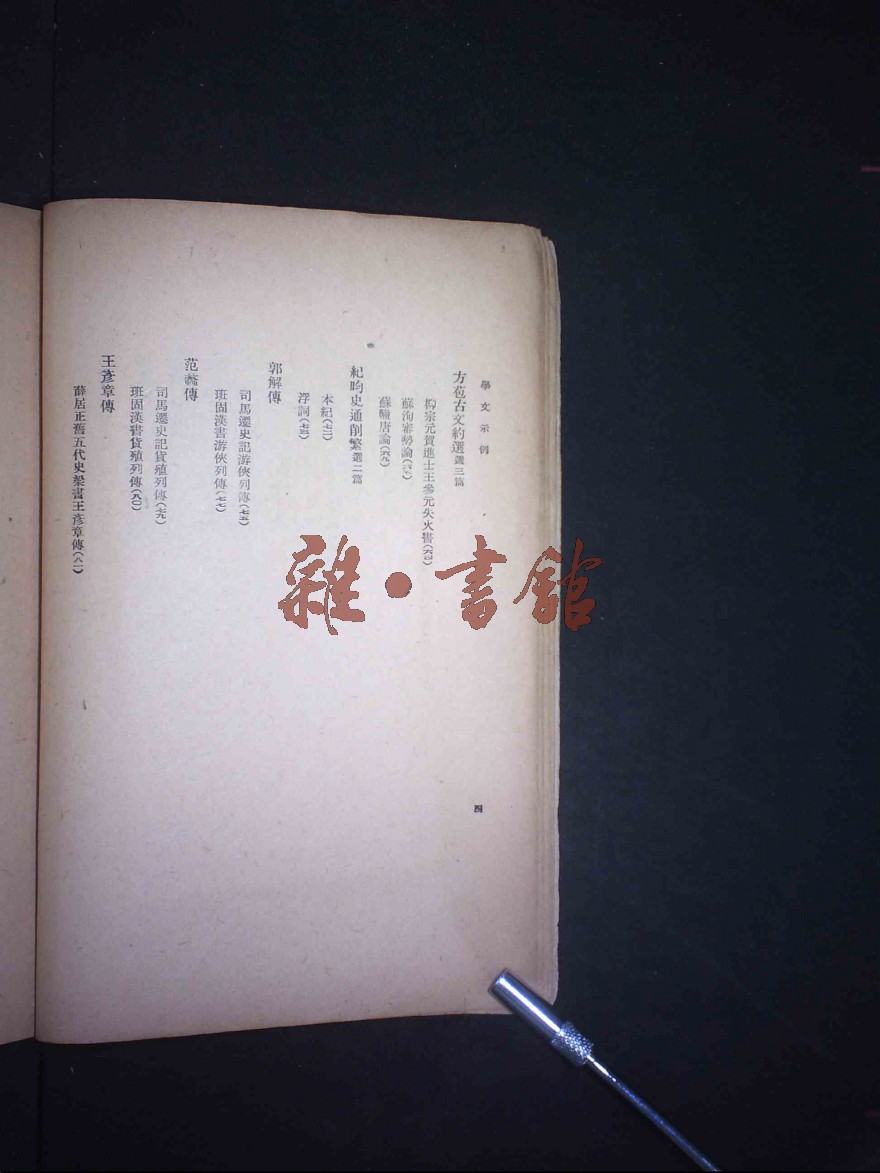 學文示例
方苞古文約選選三篇
柳宗元賀進士王參元失火書(六四)
蘇洵審勢論(六六)
蘇轍唐論(六九)
紀昀史通削繁選二篇
本紀(七二)
浮詞(七三)
郭解傳
司馬遷史記游俠列傳(七五)
班固漢書游俠列傳(七七)
范蠡傳
司馬遷史記貨殖列傳(七九)
班固漢書貨殖列傳(八〇)
王彥章傳
薛居正舊五代史梁書王彥章傳(八一)
四
雜·書館